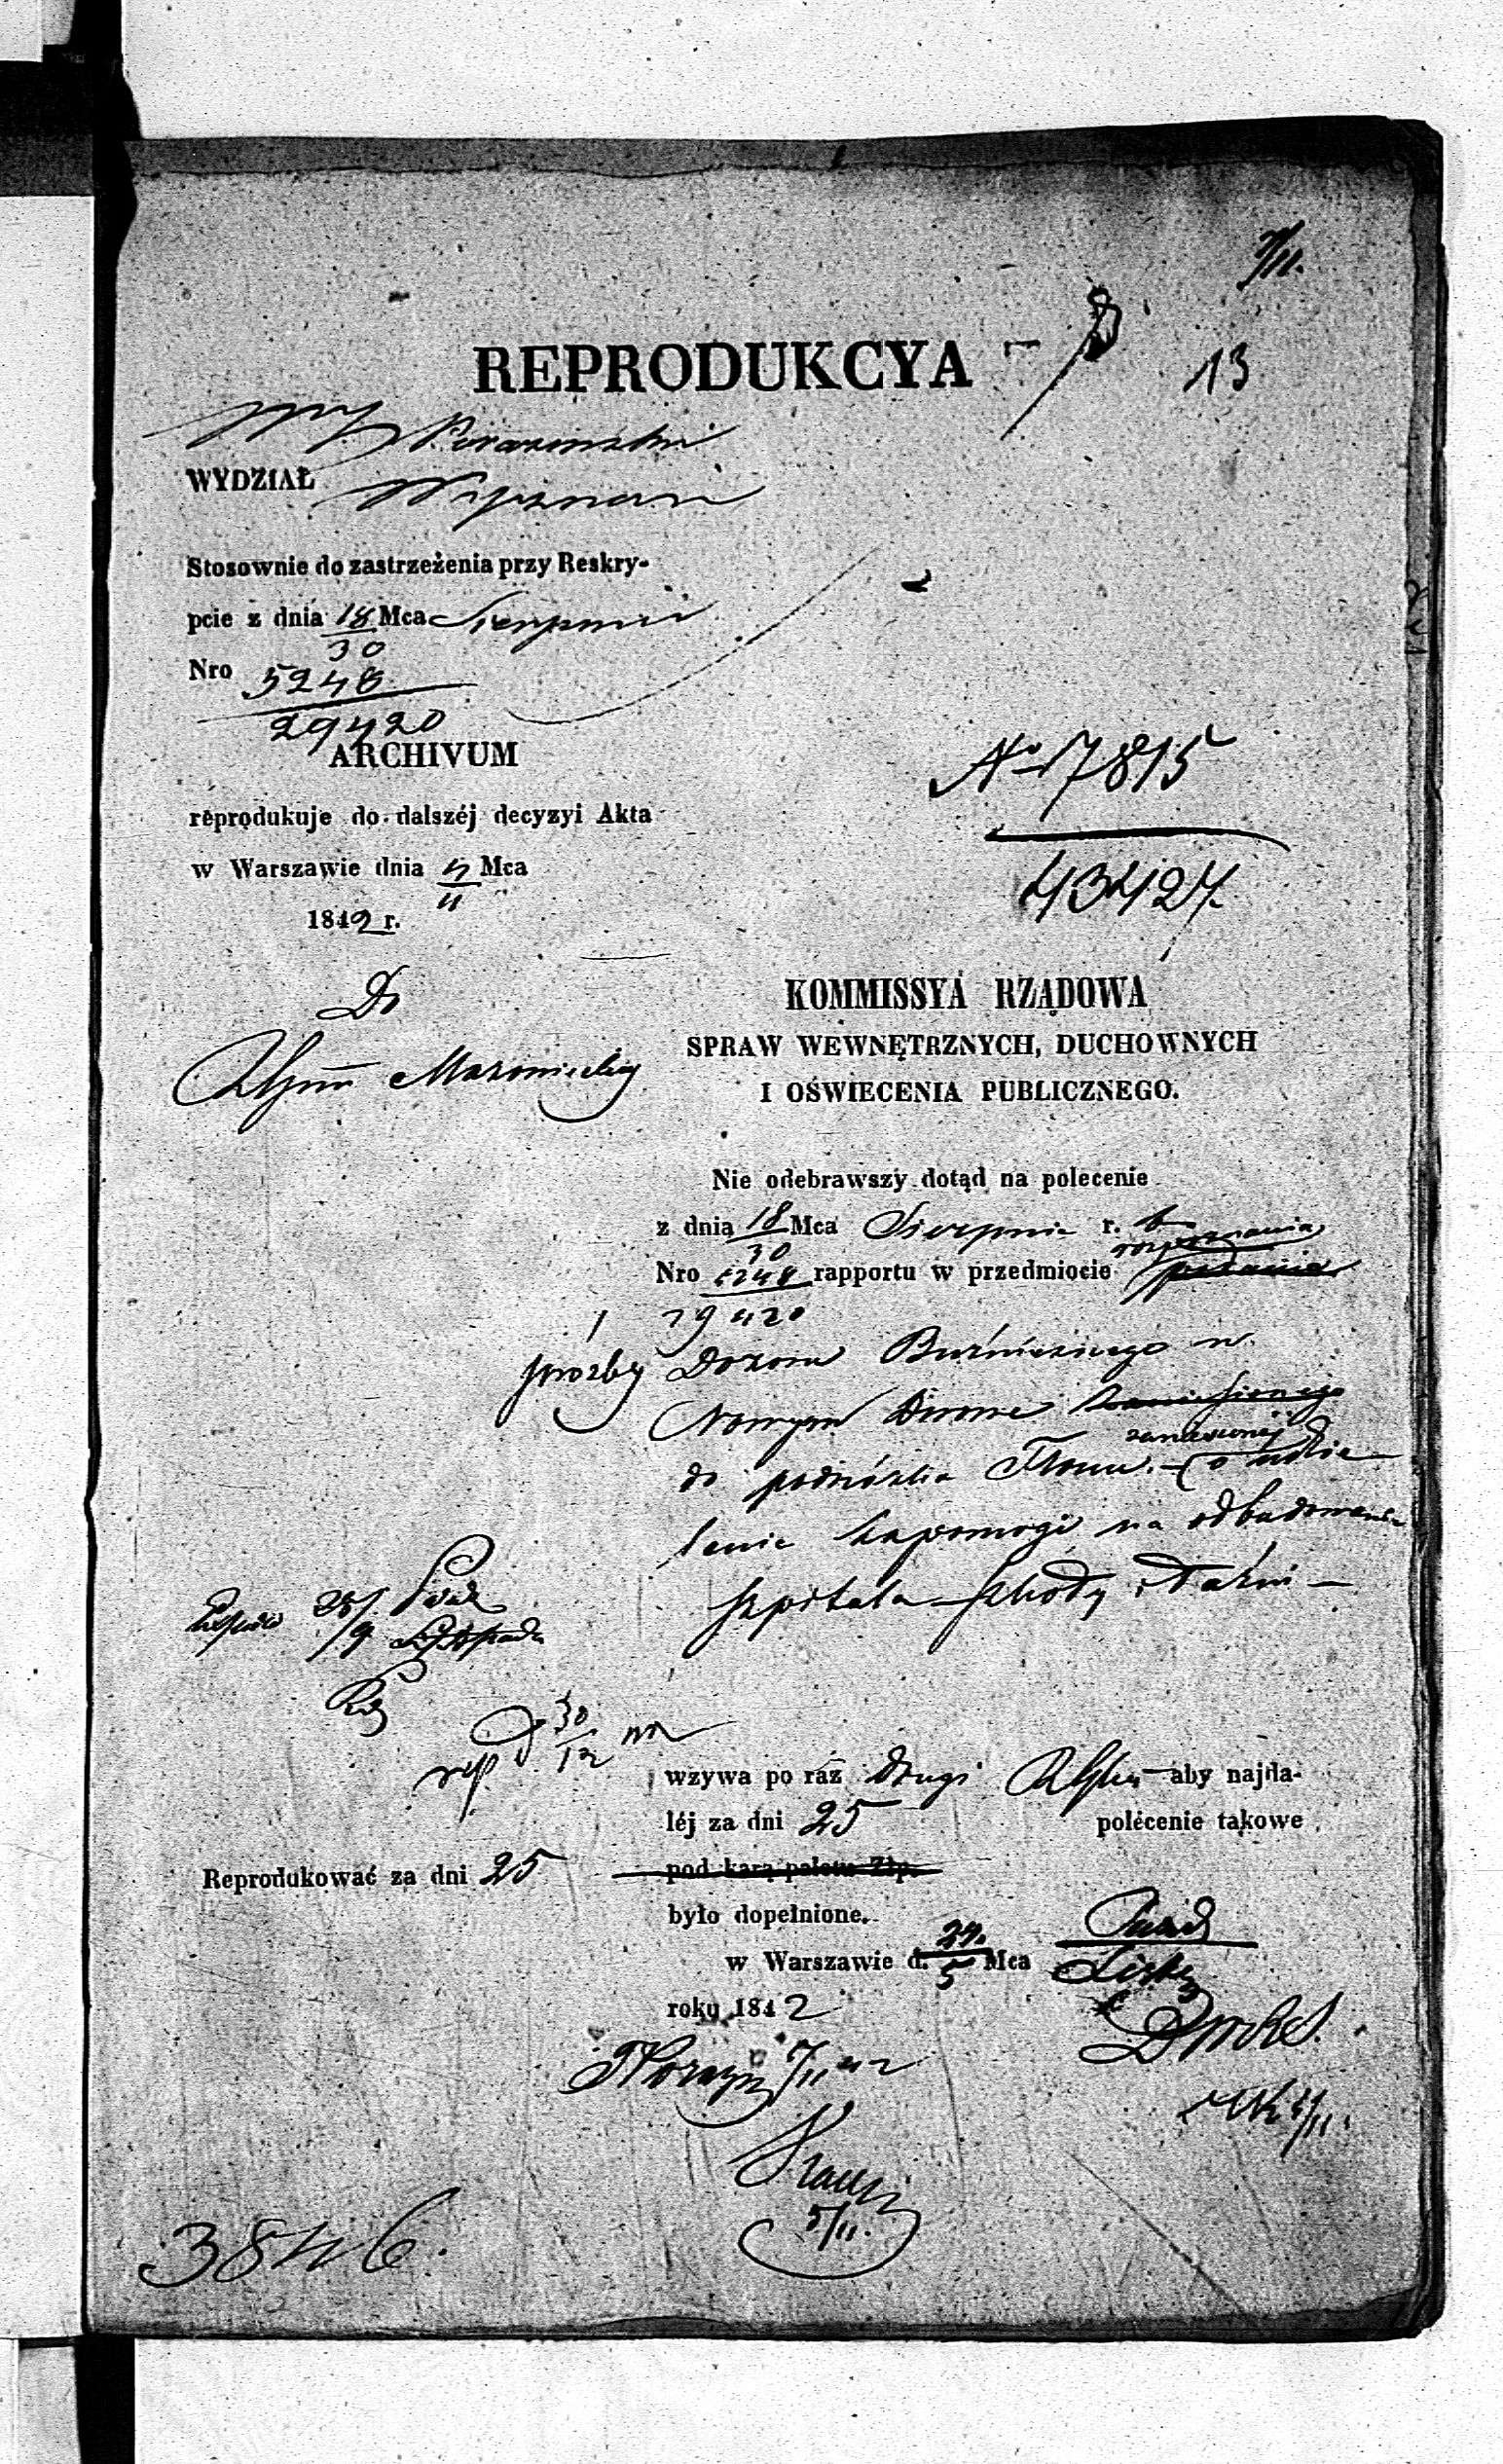 7/11.
REPRODUKCYA
13
WYDZIAŁ Wyznań
Stosownie do zastrzeżenia przy Reskry-
pcie z dnia 18/30 Mca Sierpnia
Nro 5248/29420
ARCHIVUM
reprodukuje do dalszéj decyzyi Akta
w Warszawie dnia Mca
1842 r.
No 17815
43427.
Do
Mazowieckiego
KOMMISSYA RZĄDOWA
SPRAW WEWNĘTRZNYCH, DUCHOWNYCH
I OŚWIECENIA PUBLICZNEGO.
Nie odebrawszy dotąd na polecenie
z dnia 18/30 Mca Sierpnia r. b
rozpoznania
Nro 5248/29420 rapportu w przedmiocie podania
prozby Dozoru Bużniczego w
Nowym Dworze zaniesionego
zaniesionéj
do podnóżka Tronu. – o udzie-
lenie zapomogi na odbudowanie
szpitala Szkoły i Łaźni –
28/9 Paźd
Listopada
30/12
wzywa po raz drugi aby najda-
léj za dni 25 polecenie takowe
Reprodukować za dni 25
pod karą paletu Złp.
było dopełnione.
w Warszawie d. 24/5 Mca Paźd
roku 1842
7/11 42
5/11.
3846.